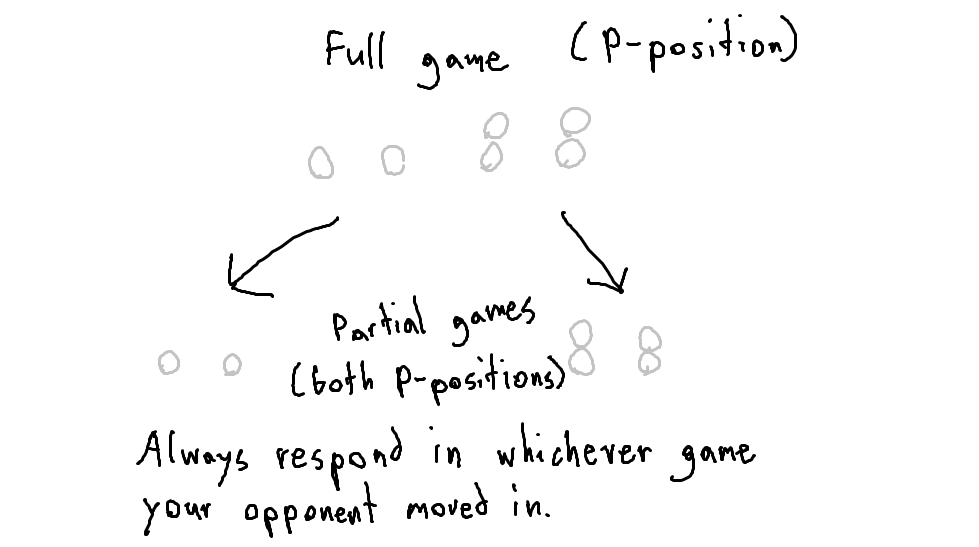 Full game (P-position)
Partial games
(both P-positions)
Always respond in whichever game
your opponent moved in.